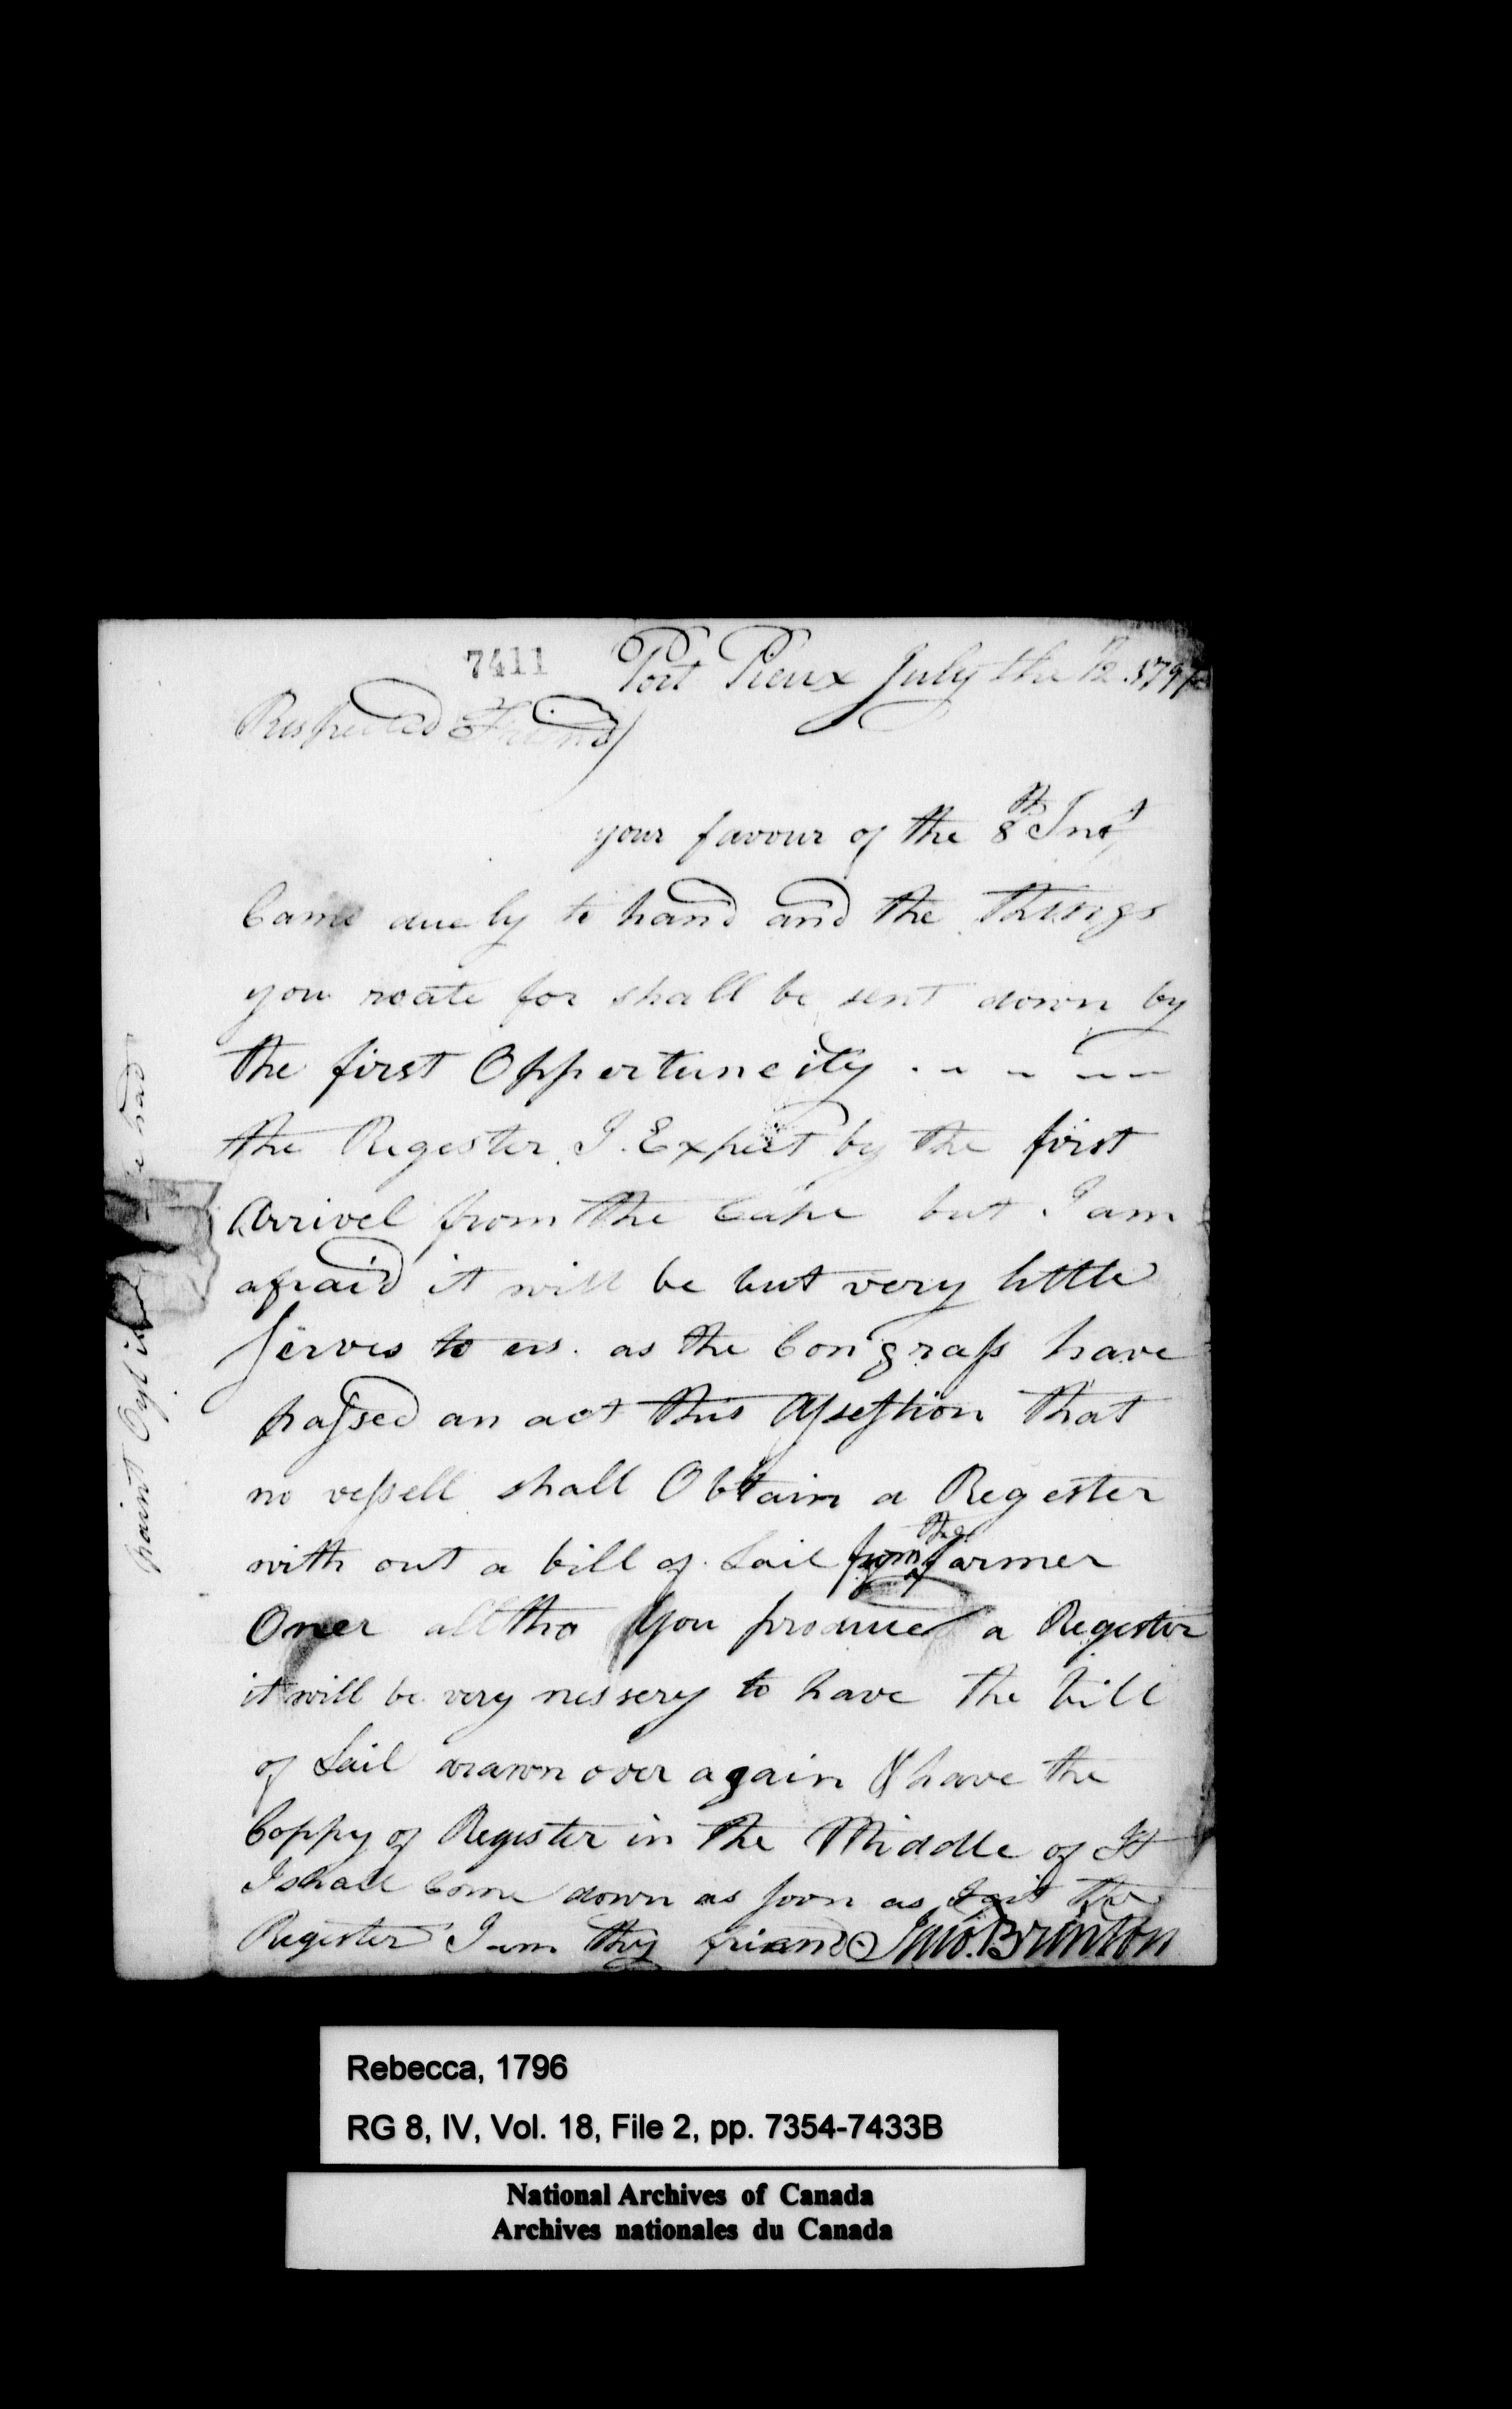 7411
Port Pieux July the 12 179
Respected Friend
your favour of the 8th Inst
Came duely to hand and the things
you roate for shall be sent down by
the first Oppertuneity
the Regester I Expect by the first
Arrivel from the Cape but I am
afraid it will be but very little
Serves to us. as the Congrass have
passed an act this Assestion that
no vessell shall Obtain a Regester
with out a bill of Sail from the farmer
Oner alltho you produce a Register
it will be very nessery to have the bill
of Sail drawn over again & have the
Coppy of Register in the Middle of It
I shall Come down as soon as I git the
Register I am thy friend Jno. Brinton
paint Oyl had
Rebecca, 1796
RG 8, IV, Vol. 18, File 2, pp. 7354-7433B
National Archives of Canada
Archives nationales du Canada